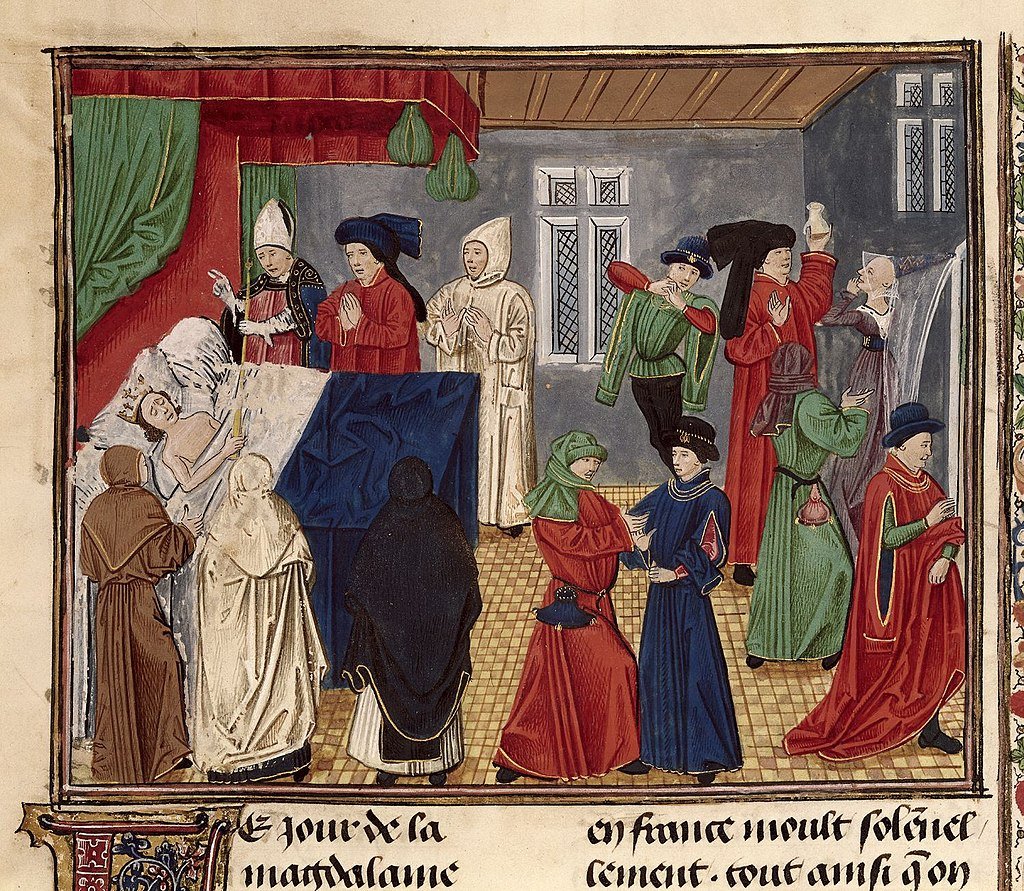 E Jour de la
magdalaine
en france moult solēnel/
lement. tout ainsi q̄ on